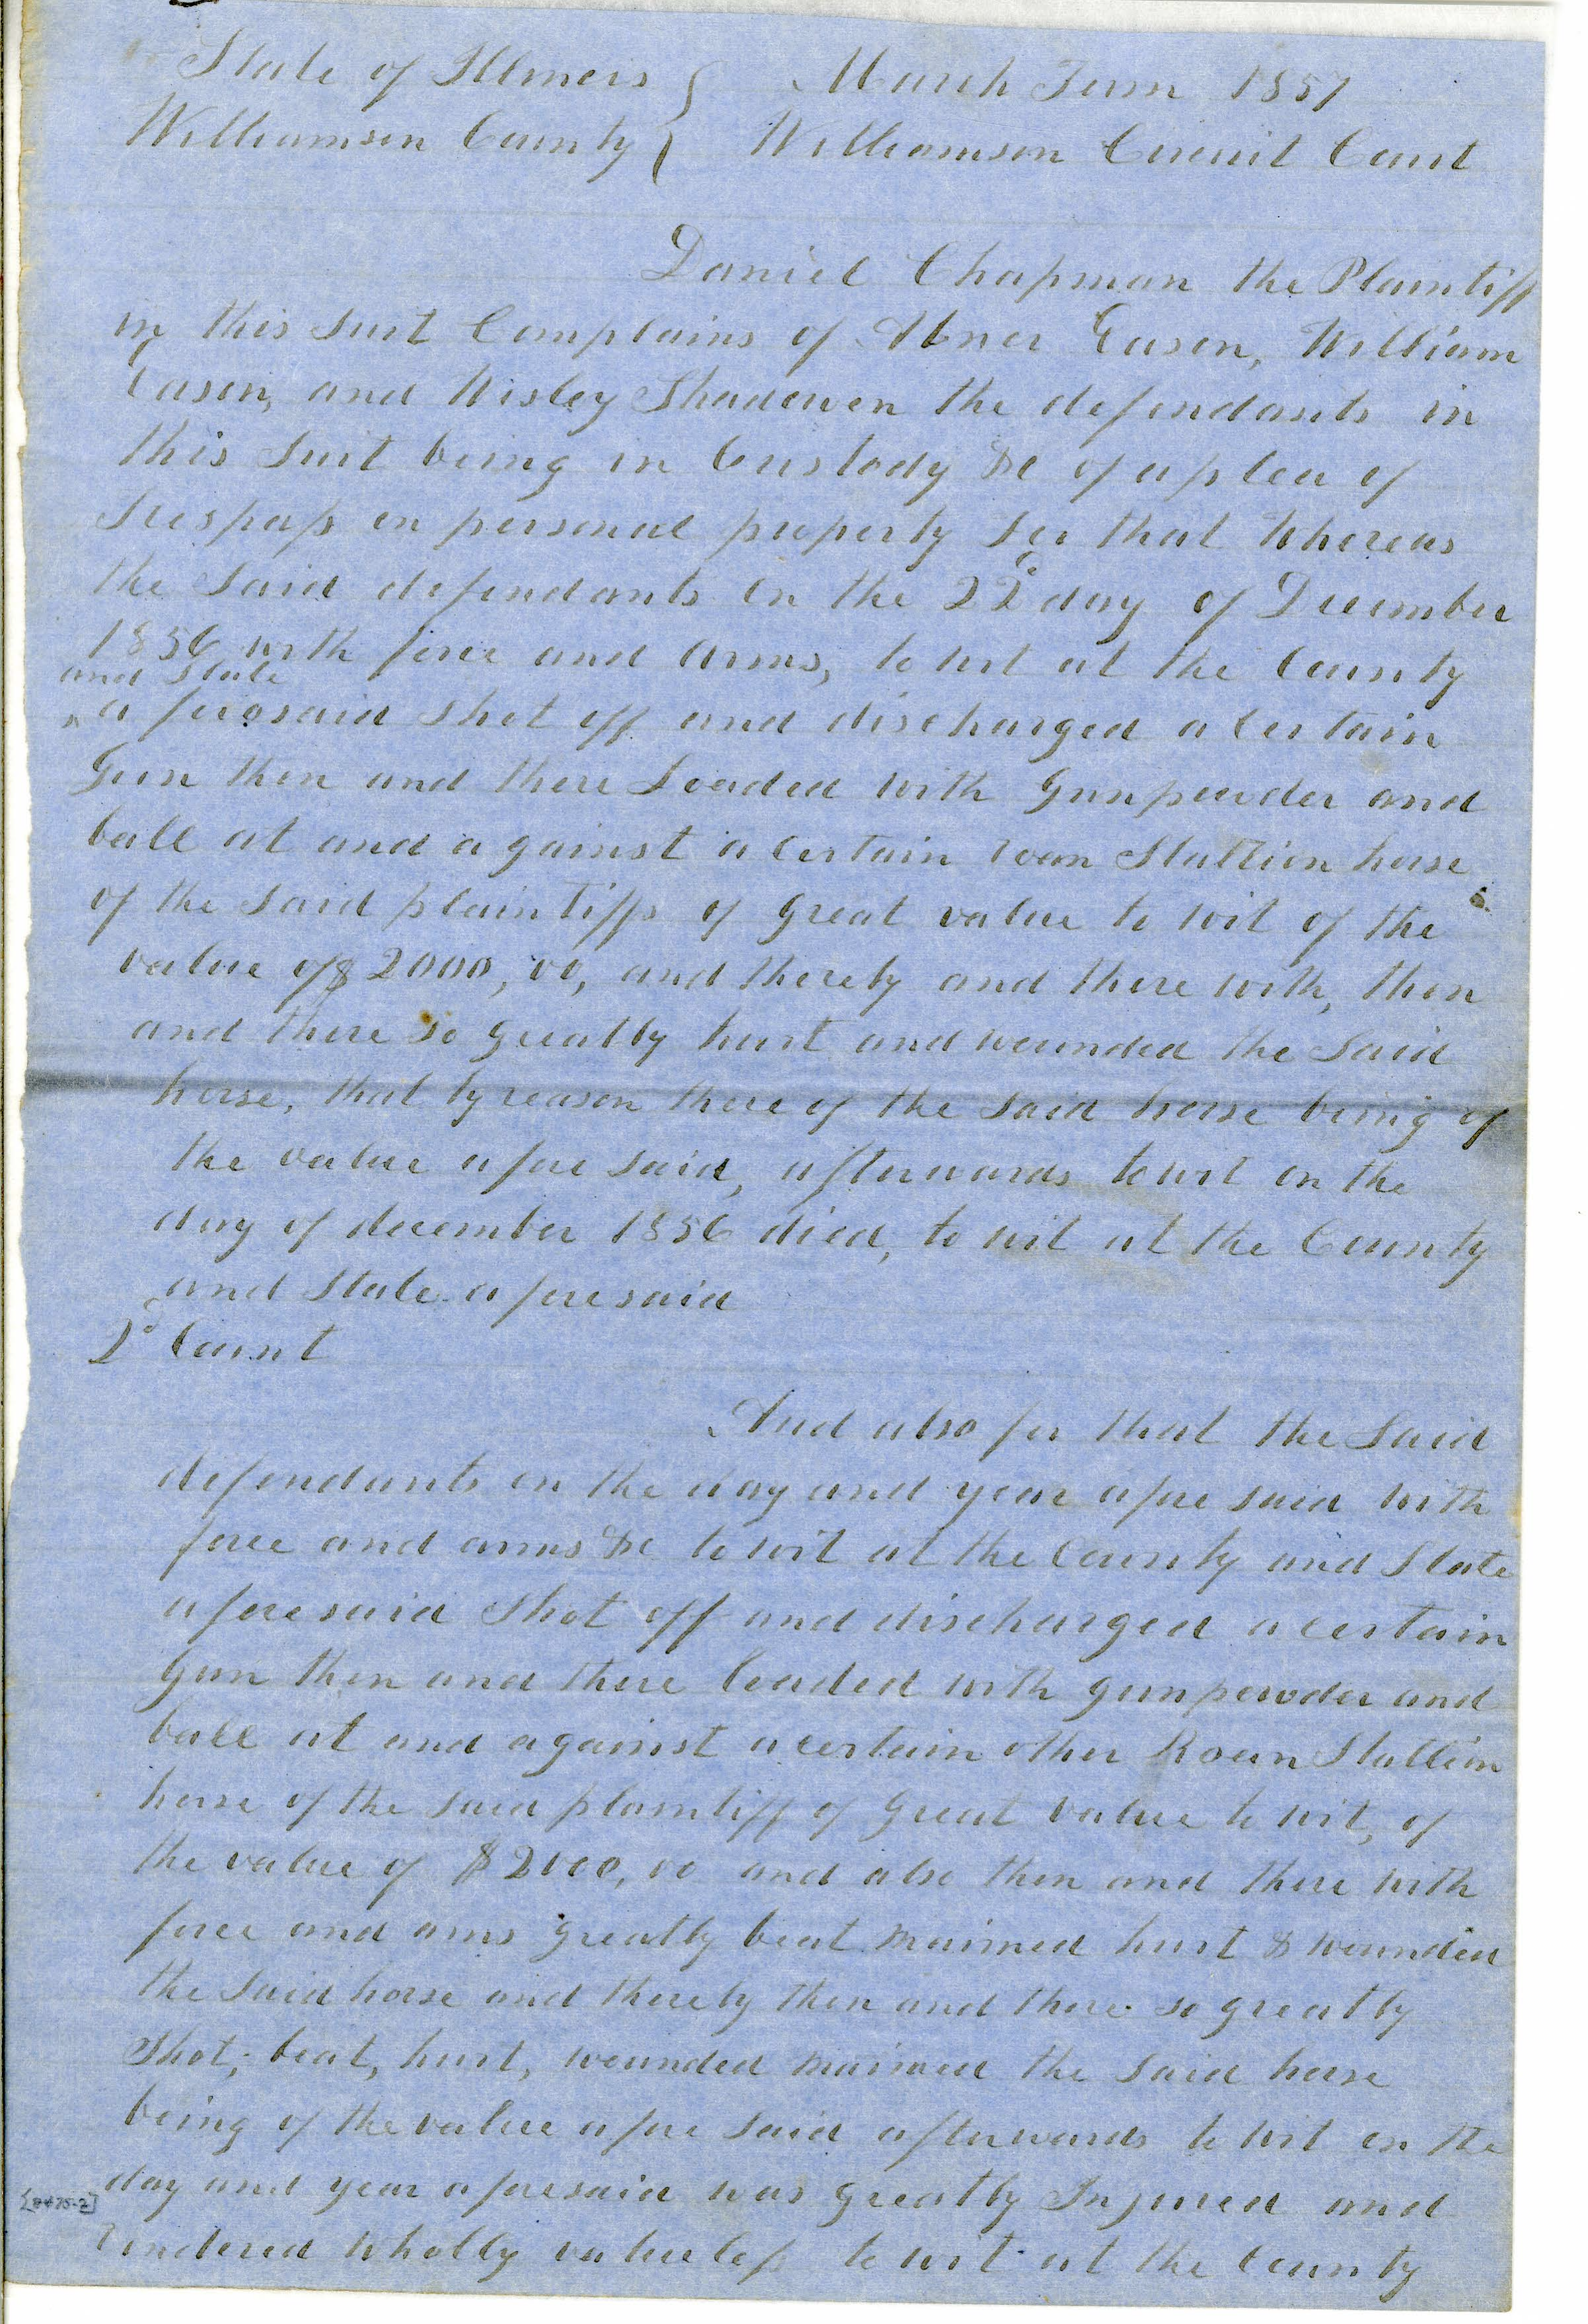 State of Illinois } March Term 1857
Williamson County } Williamson Circuit Court
Daniel Chapman the Plaintiff
in this suit Complains of Abner Eason, William
Eason, and Wisley Shadowen the defendants in
this suit being in Custody &c of a plea of
trespass on personal property for that Whereas
the Said defendants on the 22d day of December
1856 with force and arms, to wit at the County
and State
aforesaid shot off and discharged a certain
Gun then and there Loaded with Gunpowder and
ball at and against a certain roan Stallion horse
of the said plaintiffs of great value to wit of the
value of $2000,00, and thereby and there with, then
and there so greatly hurt and wounded the Said
horse, that by reason there of the said horse being of
the value afore said, afterwards to wit on the
day of december 1856 died, to wit at the County
and State aforesaid
2d Count
And also for that the Said
defendants on the day and year afore said with
force and arms &c to wit at the County and State
aforesaid Shot off and discharged a certain
Gun then and there loaded with gunpowder and
ball at and against a certain other Roan Stallion
horse of the said plaintiff of great value to wit, of
the value of $2000,00 and also then and there with
force and arms greatly beat maimed hurt & wounded
the Said horse and thereby then and there so greatly
Shot, beat, hurt, wounded maimed the Said horse
being of the value afore Said afterwards to wit on the
day and year aforesaid was greatly Injured and
rendered wholly valueless to wit at the County